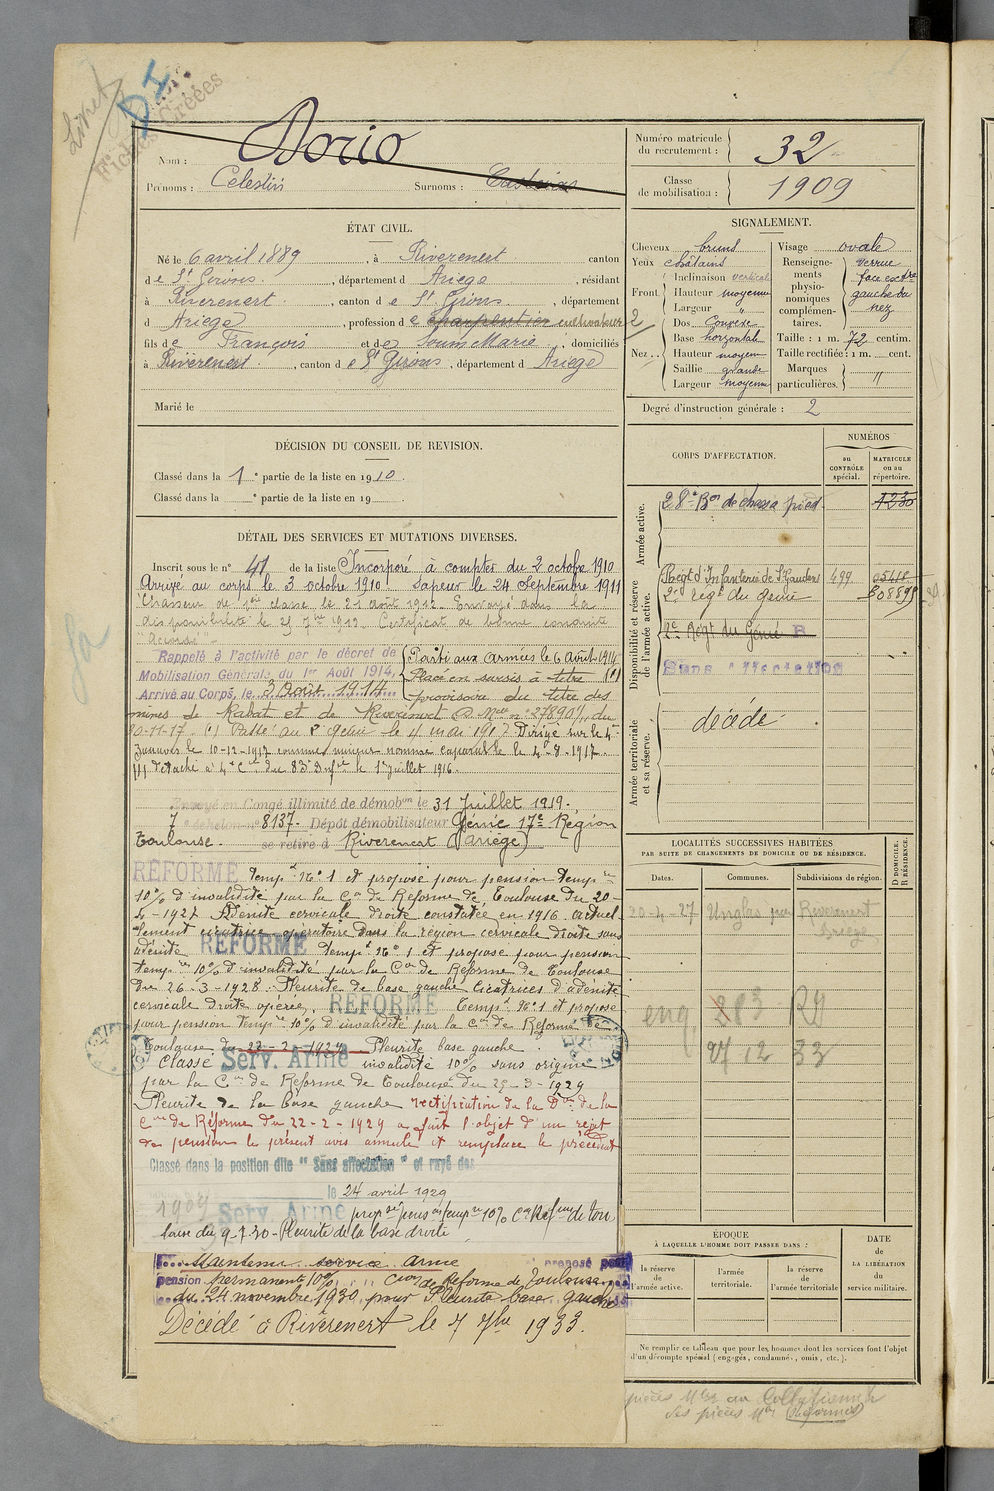 Livret
DI
Fiches Créées
Nom : Dorio
Prénoms : Celestin Surnoms :
Numéro matricule du recrutement : 32
Classe de mobilisation : 1909
ÉTAT CIVIL.
Né le 6 avril 1889, à Riverenert canton
de St Girons, département d Ariege, résidant
à Riverenert, canton de St Girons, département
d Ariege, profession de charpentier cultivateur
fils de François et de Soum Marie, domiciliés
à Riverenert, canton de St Girons, département d Ariege
Marié le
SIGNALEMENT.
Cheveux bruns
Yeux châtains
Front. Inclinaison verticale
Hauteur moyenne
Largeur "
Nez.. Dos Convexe
Base horizontale
Hauteur moyenne
Saillie grande
Largeur moyenne
Visage ovale
Renseignements physionomiques complémentaires. verrue
face
gauche du
nez
Taille : 1 m. 72 centim.
Taille rectifiée : 1 m. cent.
Marques particulières. "
2
Degré d'instruction générale : 2
DÉCISION DU CONSEIL DE REVISION.
Classé dans la 1e partie de la liste en 1910.
Classé dans la e partie de la liste en 19 .
DÉTAIL DES SERVICES ET MUTATIONS DIVERSES.
Inscrit sous le n° 41 de la liste Incorporé à compter du 2 octobre 1910
Arrivé au corps le 3 octobre 1910. sapeur le 24 Septembre 1911
Chasseur de 1ère classe le 21 août 1912. Envoyé dans la
disponibilité le 25 7bre 1912. Certificat de bonne conduite
"Accordé"
Rappelé à l'activité par le décret de
Mobilisation Générale du 1er Août 1914.
Arrivé au Corps, le 3 Août 1914
Parti aux armées le 6 Août 1914
Placé en sursis à titre (1)
provisoire au titre des
mines de Rabat et de Riverenert D. Mlle n° 27890/, du
30-11-17. (1) Passé au 2e Génie le 4 mai 1917 Dirigé sur le 4e
Zouaves le 10-12-1917 comme nommé caporal le 4-8-1917.
(1) détaché à 4e Cie du 83e Infie le 1er juillet 1916.
Envoyé en Congé illimité de démobon le 31 Juillet 1919.
7 échelon n° 8137. Dépôt démobilisateur Génie 17e Région
Toulouse. se retire à Riverenert (Ariège)
RÉFORMÉ tempre N° 1 et proposé pour pension tempre
10% d'invalidité par la Con de Réforme de Toulouse du 20-
4-1927 Adénite cervicale droite constatée en 1916. actuel-
lement cicatrice opératoire dans la région cervicale droite sans
adénite RÉFORMÉ Tempt N° 1 et proposé pour pension
tempre 10% d'invalidité par la Con de Réforme de Toulouse
du 26-3-1928. Pleurite de base gauche Cicatrices d'adénite
cervicale droite opérée. RÉFORMÉ Tempt N° 1 et proposé
pour pension Tempre 10% d'invalidité par la Con de Réforme de
Toulouse du 22-2-1929 Pleurite base gauche
Classé Serv. Armé invalidité 10% sans origine
par la Con de Réforme de Toulouse du 29-3-1929
Pleurite de la base gauche rectification de la Don de la
Con de Réforme du 22-2-1929 a fait l'objet d'un rejet
de pension le présent avis annule et remplace le précédent
Classé dans la position dite "Sans affectation" et rayé des
le 24 avril 1929
1909 Serv. Armé propsé pensn tempre 10% Con Réfme de Tou
louse du 9-7-30 - Pleurite de la base droite
Maintenu service armé proposé pour
pension permanente 10% Con de Réforme de Toulouse
du 24 novembre 1930, pour Pleurite base gauche
Décédé à Riverenert le 7 7bre 1933.
CORPS D'AFFECTATION.
NUMÉROS
au CONTRÔLE spécial.
MATRICULE ou au répertoire.
Armée active.
28e Bon de chass à pied 1230
Disponibilité et réserve de l'armée active.
Régt d'Infanterie de St Gaudens 499
2e Régt du Génie
2e Régt du Génie B
Sans affectation
Armée territoriale et sa réserve.
décédé.
LOCALITÉS SUCCESSIVES HABITÉES
PAR SUITE DE CHANGEMENTS DE DOMICILE OU DE RÉSIDENCE.
Dates.
Communes.
Subdivisions de région.
D DOMICILE. R RÉSIDENCE.
20-4-27 Unglas par Riverenert
Ariège
ÉPOQUE
À LAQUELLE L'HOMME DOIT PASSER DANS :
la réserve de l'armée active.
l'armée territoriale.
la réserve de l'armée territoriale
DATE de LA LIBÉRATION du service militaire.
Ne remplir ce tableau que pour les hommes dont les services font l'objet
d'un décompte spécial (engagés, condamnés, omis, etc.).